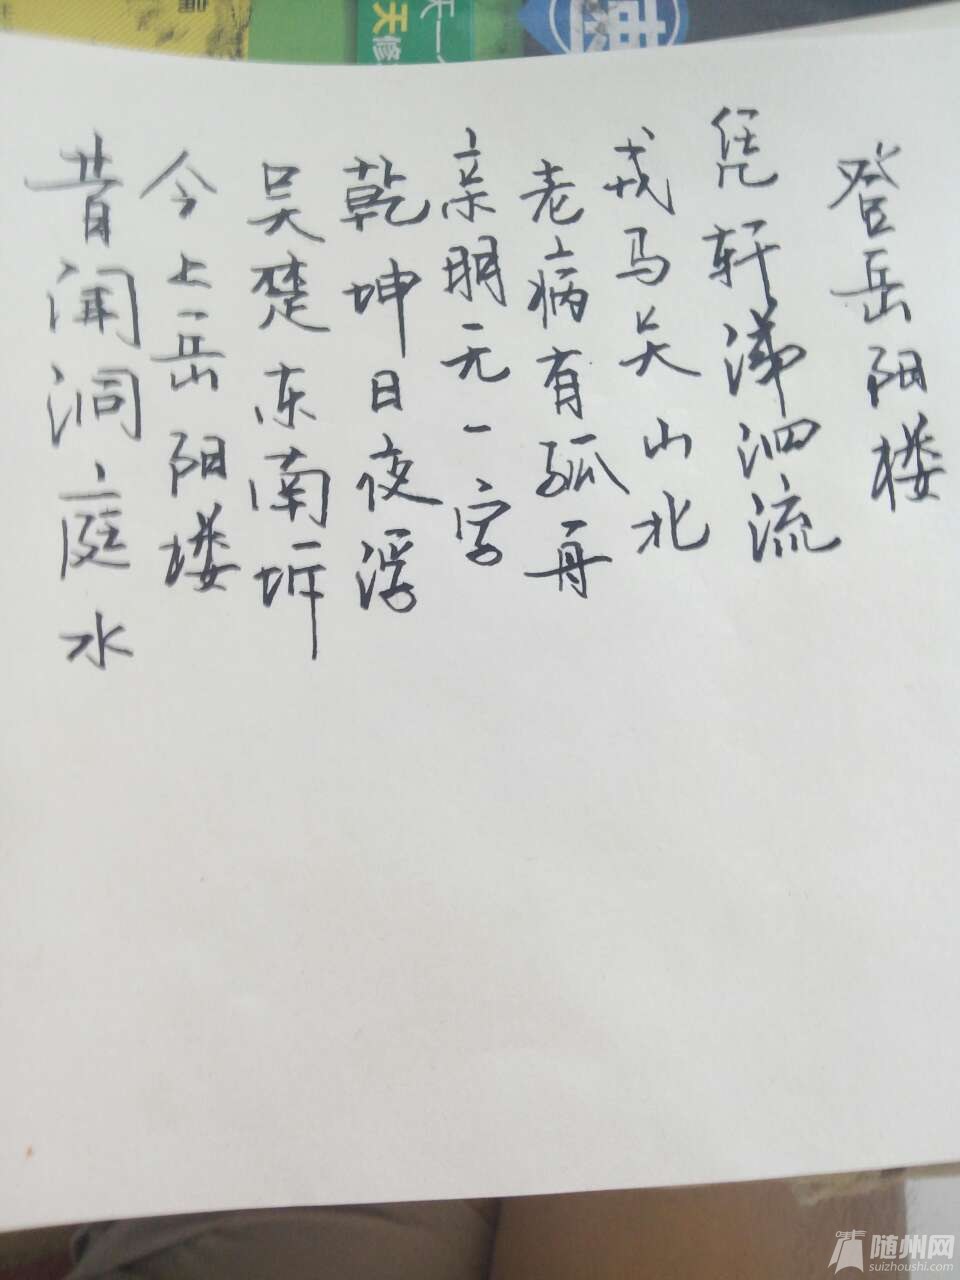 登岳阳楼
昔闻洞庭水
今上岳阳楼
吴楚东南坼
乾坤日夜浮
亲朋无一字
老病有孤舟
戎马关山北
凭轩涕泗流
天一
天修
随州网
suizhoushi.com